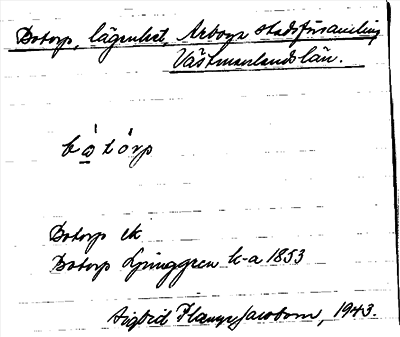 Botorp, lägenhet, Arboga stadsförsamling
Västmanlands län.
bo̲tórp
Botorp ek
Botorp Ljunggren k-a 1853
Sigbrid Plange Jacobson, 1943.